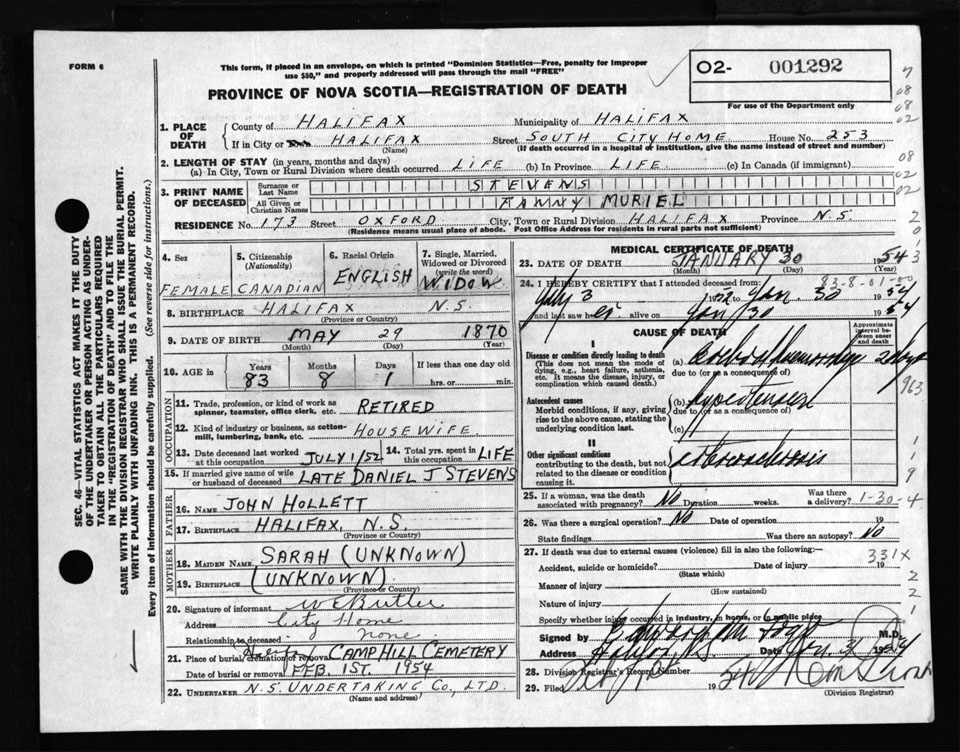 FORM 6
This form, if placed in an envelope, on which is printed "Dominion Statistics—Free, penalty for improper
use $50," and properly addressed will pass through the mail "FREE"
PROVINCE OF NOVA SCOTIA—REGISTRATION OF DEATH
02- 001292
For use of the Department only
SEC. 46—VITAL STATISTICS ACT MAKES IT THE DUTY
OF THE UNDERTAKER OR PERSON ACTING AS UNDER-
TAKER TO OBTAIN ALL THE PARTICULARS REQUIRED
IN THE "REGISTRATION OF DEATH" AND TO FILE THE
SAME WITH THE DIVISION REGISTRAR WHO SHALL ISSUE THE BURIAL PERMIT.
WRITE PLAINLY WITH UNFADING INK. THIS IS A PERMANENT RECORD.
Every item of information should be carefully supplied. (See reverse side for instructions.)
1. PLACE OF DEATH
County of HALIFAX Municipality of HALIFAX
If in City or Town HALIFAX Street SOUTH CITY HOME House No. 253
(Name) (If death occurred in a hospital or institution, give the name instead of street and number)
2. LENGTH OF STAY (in years, months and days)
(a) In City, Town or Rural Division where death occurred LIFE (b) In Province LIFE. (c) In Canada (if immigrant)
3. PRINT NAME OF DECEASED
Surname or Last Name STEVENS
All Given or Christian Names FANNY MURIEL
RESIDENCE No. 173 Street OXFORD City, Town or Rural Division HALIFAX Province N.S.
(Residence means usual place of abode. Post Office Address for residents in rural parts not sufficient)
4. Sex FEMALE
5. Citizenship (Nationality) CANADIAN
6. Racial Origin ENGLISH
7. Single, Married, Widowed or Divorced (write the word) WIDOW
8. BIRTHPLACE HALIFAX N.S.
(Province or Country)
9. DATE OF BIRTH MAY 29 1870
(Month) (Day) (Year)
10. AGE in Years 83 Months 8 Days 1 If less than one day old
hrs. or min.
OCCUPATION
11. Trade, profession, or kind of work as spinner, teamster, office clerk, etc. RETIRED
12. Kind of industry or business, as cotton-mill, lumbering, bank, etc. HOUSEWIFE
13. Date deceased last worked at this occupation JULY 1/52
14. Total yrs. spent in this occupation LIFE
15. If married give name of wife or husband of deceased LATE DANIEL J STEVENS
FATHER
16. Name JOHN HOLLETT
17. Birthplace HALIFAX, N.S.
(Province or Country)
MOTHER
18. Maiden Name SARAH (UNKNOWN)
19. Birthplace (UNKNOWN)
(Province or Country)
20. Signature of informant W E Butler
Address City Home
Relationship to deceased none
21. Place of burial, cremation or removal Halifax CAMP HILL CEMETERY
Date of burial or removal FEB. 1ST. 1954
22. UNDERTAKER N.S. UNDERTAKING CO., LTD.
(Name and address)
MEDICAL CERTIFICATE OF DEATH
23. DATE OF DEATH JANUARY 30 1954
(Month) (Day) (Year)
83-8-01-50
24. I HEREBY CERTIFY that I attended deceased from:
July 3 1952 to Jan. 30 1954
and last saw her alive on Jan 30 1954
CAUSE OF DEATH
Approximate interval between onset and death
I
Disease or condition directly leading to death
This does not mean the mode of dying, e.g., heart failure, asthenia, etc. It means the disease, injury, or complication which caused death.)
(a) Cerebral haemorrhage 2 days
due to (or as a consequence of)
Antecedent causes
Morbid conditions, if any, giving rise to the above cause, stating the underlying condition last.
(b) hypertension
due to (or as a consequence of)
(c)
II
Other significant conditions
contributing to the death, but not related to the disease or condition causing it.
arteriosclerosis
963
25. If a woman, was the death associated with pregnancy? NO Duration weeks. Was there a delivery? 1-30-4
26. Was there a surgical operation? NO Date of operation 19
State findings Was there an autopsy? NO
27. If death was due to external causes (violence) fill in also the following:—
Accident, suicide or homicide? Date of injury 19 331X
(State which)
Manner of injury
(How sustained)
Nature of injury
Specify whether injury occurred in industry, in home, or in public place
Signed by M.D.
Address Halifax N.S. Date Jan. 31 1954
28. Division Registrar's Record Number
29. Filed 19 54
(Division Registrar)